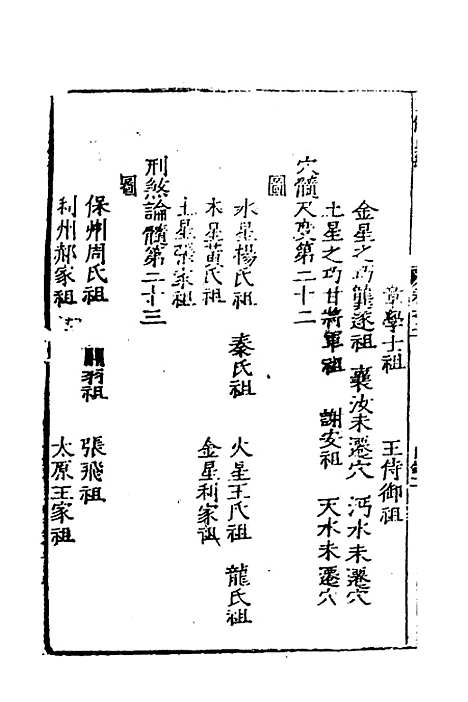 章學士祖　王侍御祖
金星之巧龔遂祖　襄汝未遷穴　沔水未遷穴
土星之巧甘將軍祖　謝安祖　天水未遷穴
穴髓尺度第二十二
圖
水星楊氏祖　秦氏祖　火星王氏祖　龍氏祖
木星黃氏祖　金星利家祖
土星張家祖
刑煞論髓第二十三
圖
保州周氏祖　翁祖　張飛祖
利州郝家祖　太原王家祖